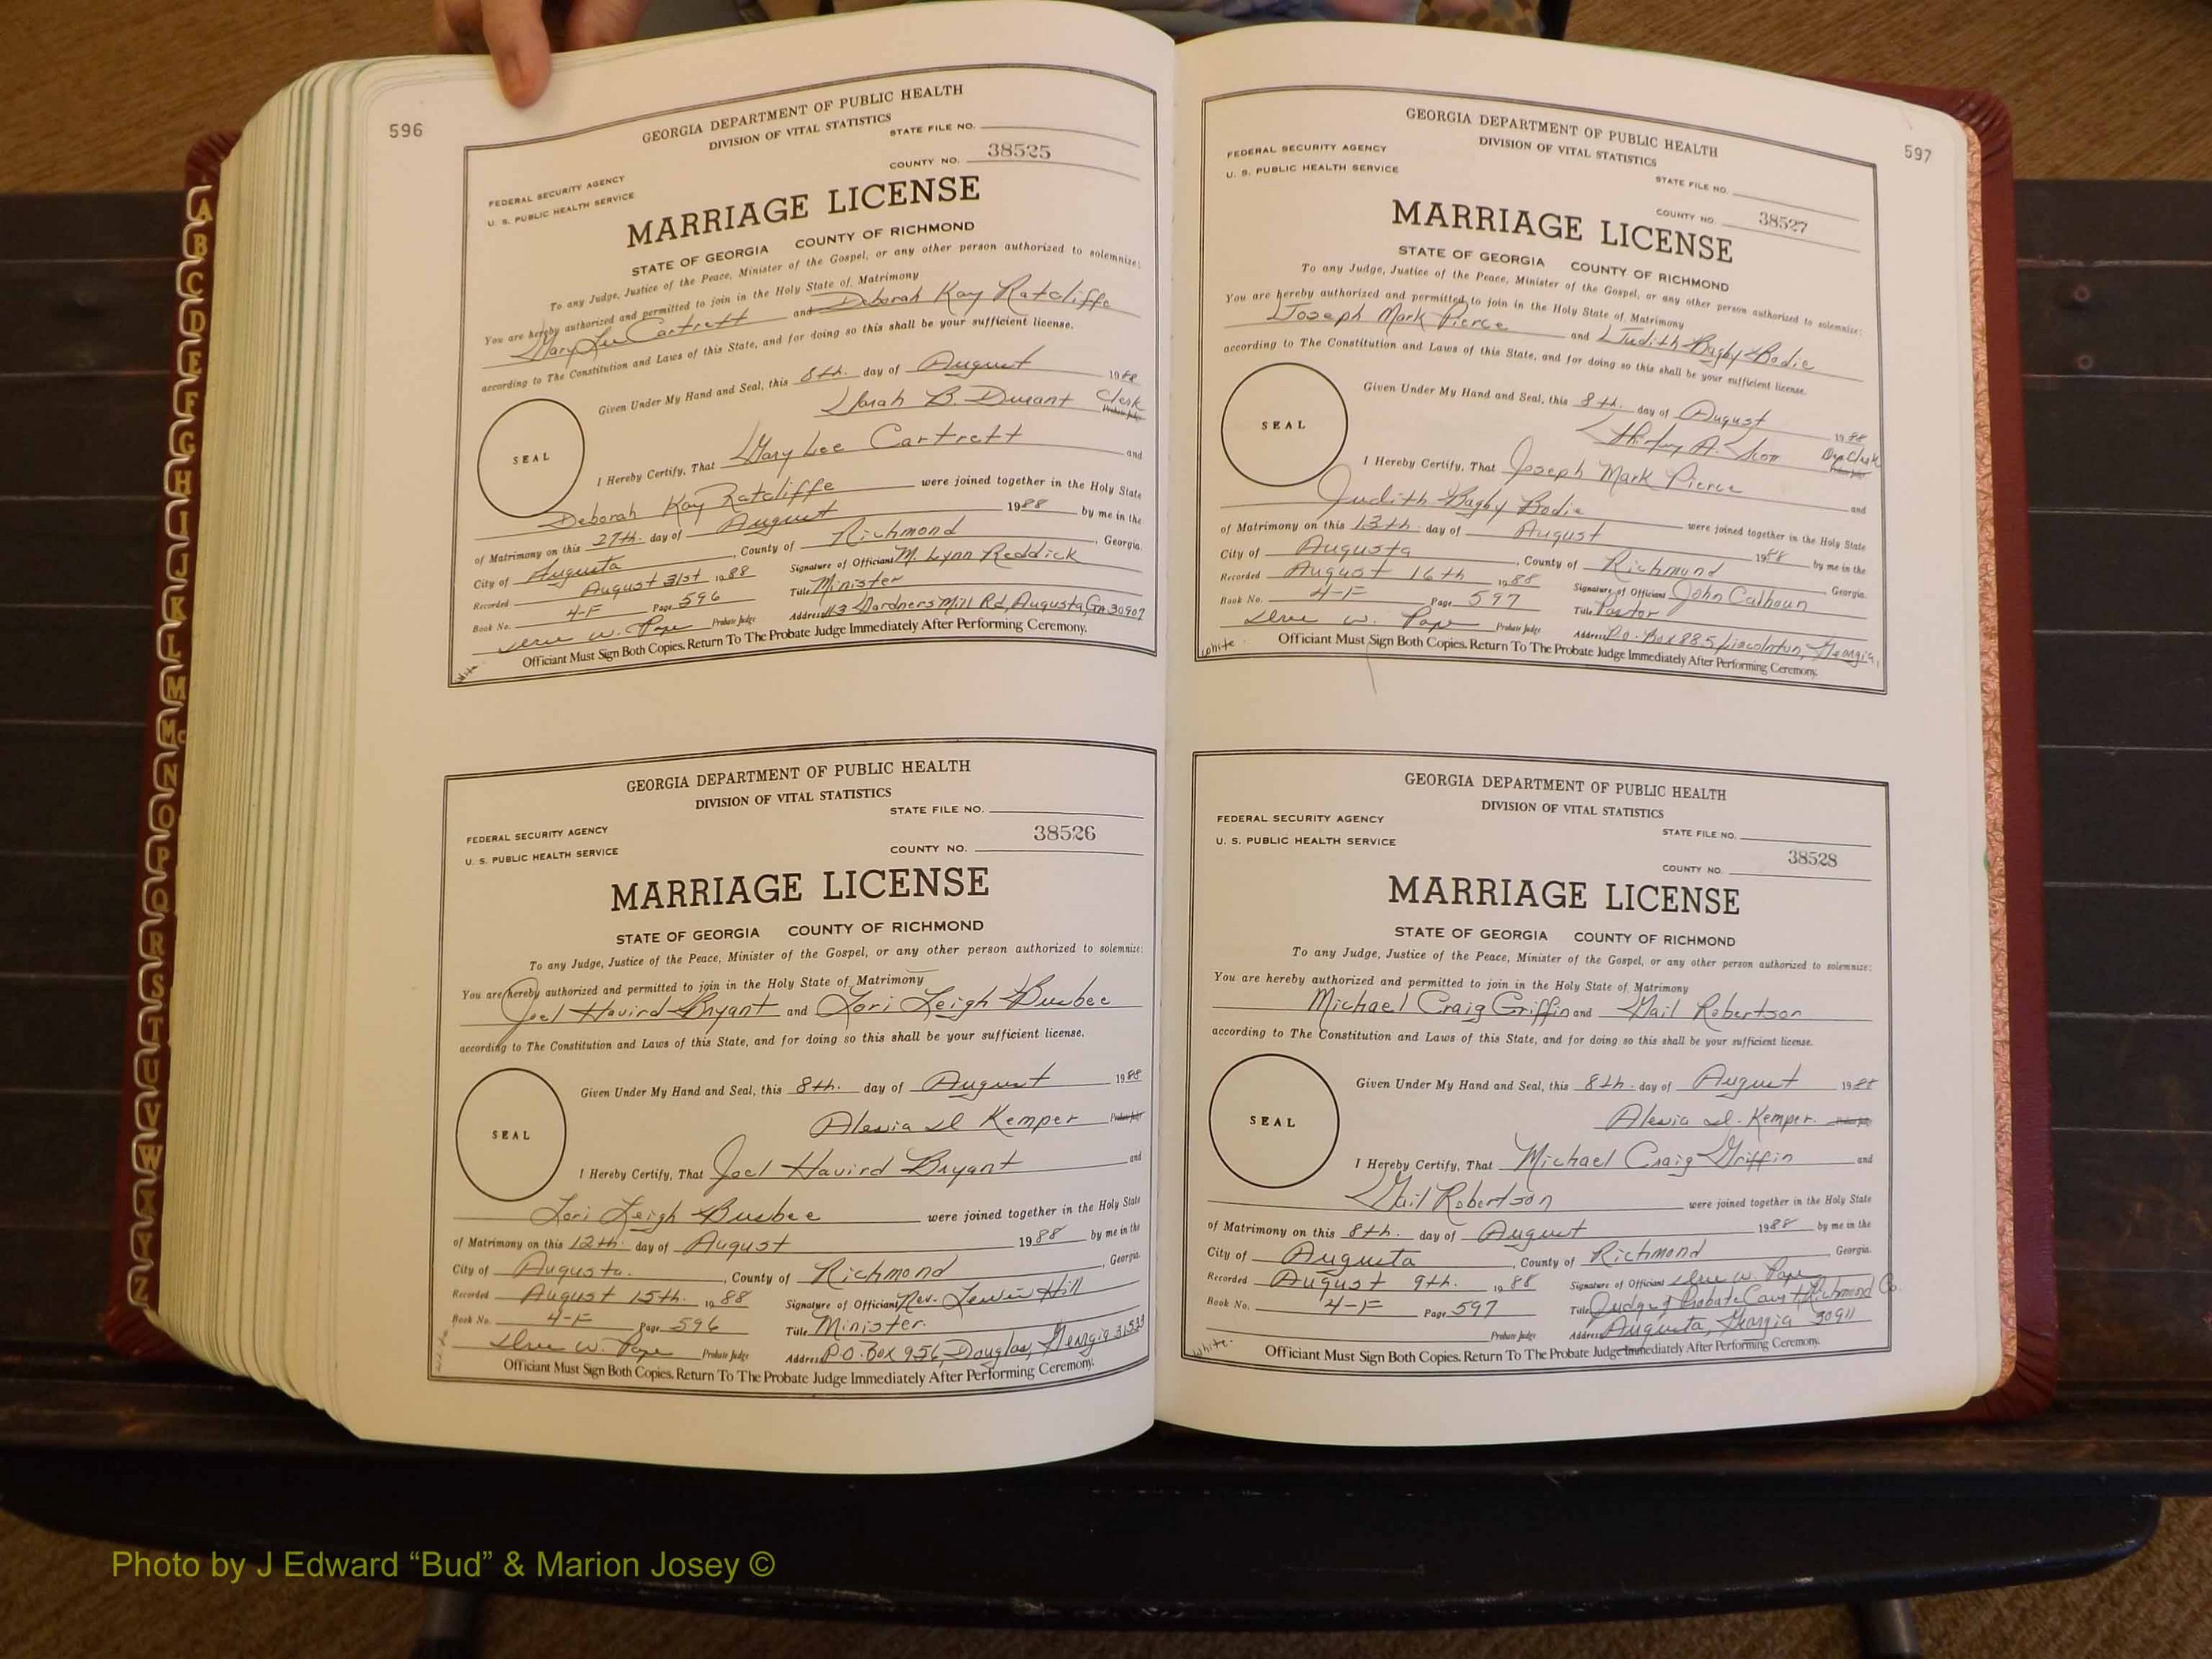 596
GEORGIA DEPARTMENT OF PUBLIC HEALTH
DIVISION OF VITAL STATISTICS
STATE FILE NO.
COUNTY NO. 38525
FEDERAL SECURITY AGENCY
U. S. PUBLIC HEALTH SERVICE
MARRIAGE LICENSE
STATE OF GEORGIA COUNTY OF RICHMOND
To any Judge, Justice of the Peace, Minister of the Gospel, or any other person authorized to solemnize:
You are hereby authorized and permitted to join in the Holy State of Matrimony
Gary Lee Cartrett and Deborah Kay Ratcliffe
according to The Constitution and Laws of this State, and for doing so this shall be your sufficient license.
Given Under My Hand and Seal, this 8th. day of August 1988
Sarah B. Durant Clerk
Probate Judge
SEAL
I Hereby Certify, That Gary Lee Cartrett and
Deborah Kay Ratcliffe were joined together in the Holy State
of Matrimony on this 27th. day of August 1988 by me in the
City of Augusta, County of Richmond, Georgia.
Recorded August 31st 1988 Signature of Official M. Lynn Reddick
Book No. 4-F Page 596 Title Minister
Probate Judge Address Gardners Mill Rd, Augusta, GA 30907
Officiant Must Sign Both Copies. Return To The Probate Judge Immediately After Performing Ceremony.
White
GEORGIA DEPARTMENT OF PUBLIC HEALTH
DIVISION OF VITAL STATISTICS
STATE FILE NO.
38526
FEDERAL SECURITY AGENCY
COUNTY NO.
U. S. PUBLIC HEALTH SERVICE
MARRIAGE LICENSE
STATE OF GEORGIA COUNTY OF RICHMOND
To any Judge, Justice of the Peace, Minister of the Gospel, or any other person authorized to solemnize:
You are hereby authorized and permitted to join in the Holy State of Matrimony
Joel Havird Bryant and Lori Leigh Busbee
according to The Constitution and Laws of this State, and for doing so this shall be your sufficient license.
Given Under My Hand and Seal, this 8th. day of August 1988
Alexia D Kemper Probate Judge
SEAL
I Hereby Certify, That Joel Havird Bryant and
Lori Leigh Busbee were joined together in the Holy State
of Matrimony on this 12th. day of August 1988 by me in the
City of Augusta., County of Richmond, Georgia.
Recorded August 15th. 1988 Signature of Official Rev. Lewis Hill
Book No. 4-F Page 596 Title Minister.
Probate Judge Address P.O. Box 956, Douglas, Georgia
Officiant Must Sign Both Copies. Return To The Probate Judge Immediately After Performing Ceremony.
597
GEORGIA DEPARTMENT OF PUBLIC HEALTH
DIVISION OF VITAL STATISTICS
FEDERAL SECURITY AGENCY
U. S. PUBLIC HEALTH SERVICE
STATE FILE NO.
COUNTY NO. 38527
MARRIAGE LICENSE
STATE OF GEORGIA COUNTY OF RICHMOND
To any Judge, Justice of the Peace, Minister of the Gospel, or any other person authorized to solemnize:
You are hereby authorized and permitted to join in the Holy State of Matrimony
Joseph Mark Pierce and Judith Bagby Bodie
according to The Constitution and Laws of this State, and for doing so this shall be your sufficient license.
Given Under My Hand and Seal, this 8th. day of August 1988
Shirley A. Dep Clerk
Probate Judge
SEAL
I Hereby Certify, That Joseph Mark Pierce and
Judith Bagby Bodie were joined together in the Holy State
of Matrimony on this 13th. day of August 1988 by me in the
City of Augusta, County of Richmond Georgia.
Recorded August 16th 1988 Signature of Official John Calhoun
Book No. 4-F Page 597 Title Pastor
Probate Judge Address P.O. Box 885 Lincolnton, Georgia
Officiant Must Sign Both Copies. Return To The Probate Judge Immediately After Performing Ceremony.
White
GEORGIA DEPARTMENT OF PUBLIC HEALTH
DIVISION OF VITAL STATISTICS
FEDERAL SECURITY AGENCY
STATE FILE NO.
U. S. PUBLIC HEALTH SERVICE
38528
COUNTY NO.
MARRIAGE LICENSE
STATE OF GEORGIA COUNTY OF RICHMOND
To any Judge, Justice of the Peace, Minister of the Gospel, or any other person authorized to solemnize:
You are hereby authorized and permitted to join in the Holy State of Matrimony
Michael Craig Griffin and Gail Robertson
according to The Constitution and Laws of this State, and for doing so this shall be your sufficient license.
Given Under My Hand and Seal, this 8th. day of August 1988
Alexia D. Kemper.
SEAL
I Hereby Certify, That Michael Craig Griffin and
Gail Robertson were joined together in the Holy State
of Matrimony on this 8th. day of August 1988 by me in the
City of Augusta, County of Richmond, Georgia.
Recorded August 9th. 1988 Signature of Official
Book No. 4-F Page 597 Title Judge of Probate Court, Richmond Co.
Probate Judge Address Augusta, Georgia 30911
Officiant Must Sign Both Copies. Return To The Probate Judge Immediately After Performing Ceremony.
White
A
B
C
D
E
F
G
H
I
J
K
L
M
Mc
N
O
P
Q
R
S
T
U
V
W
X
Y
Z
Photo by J Edward “Bud” & Marion Josey ©